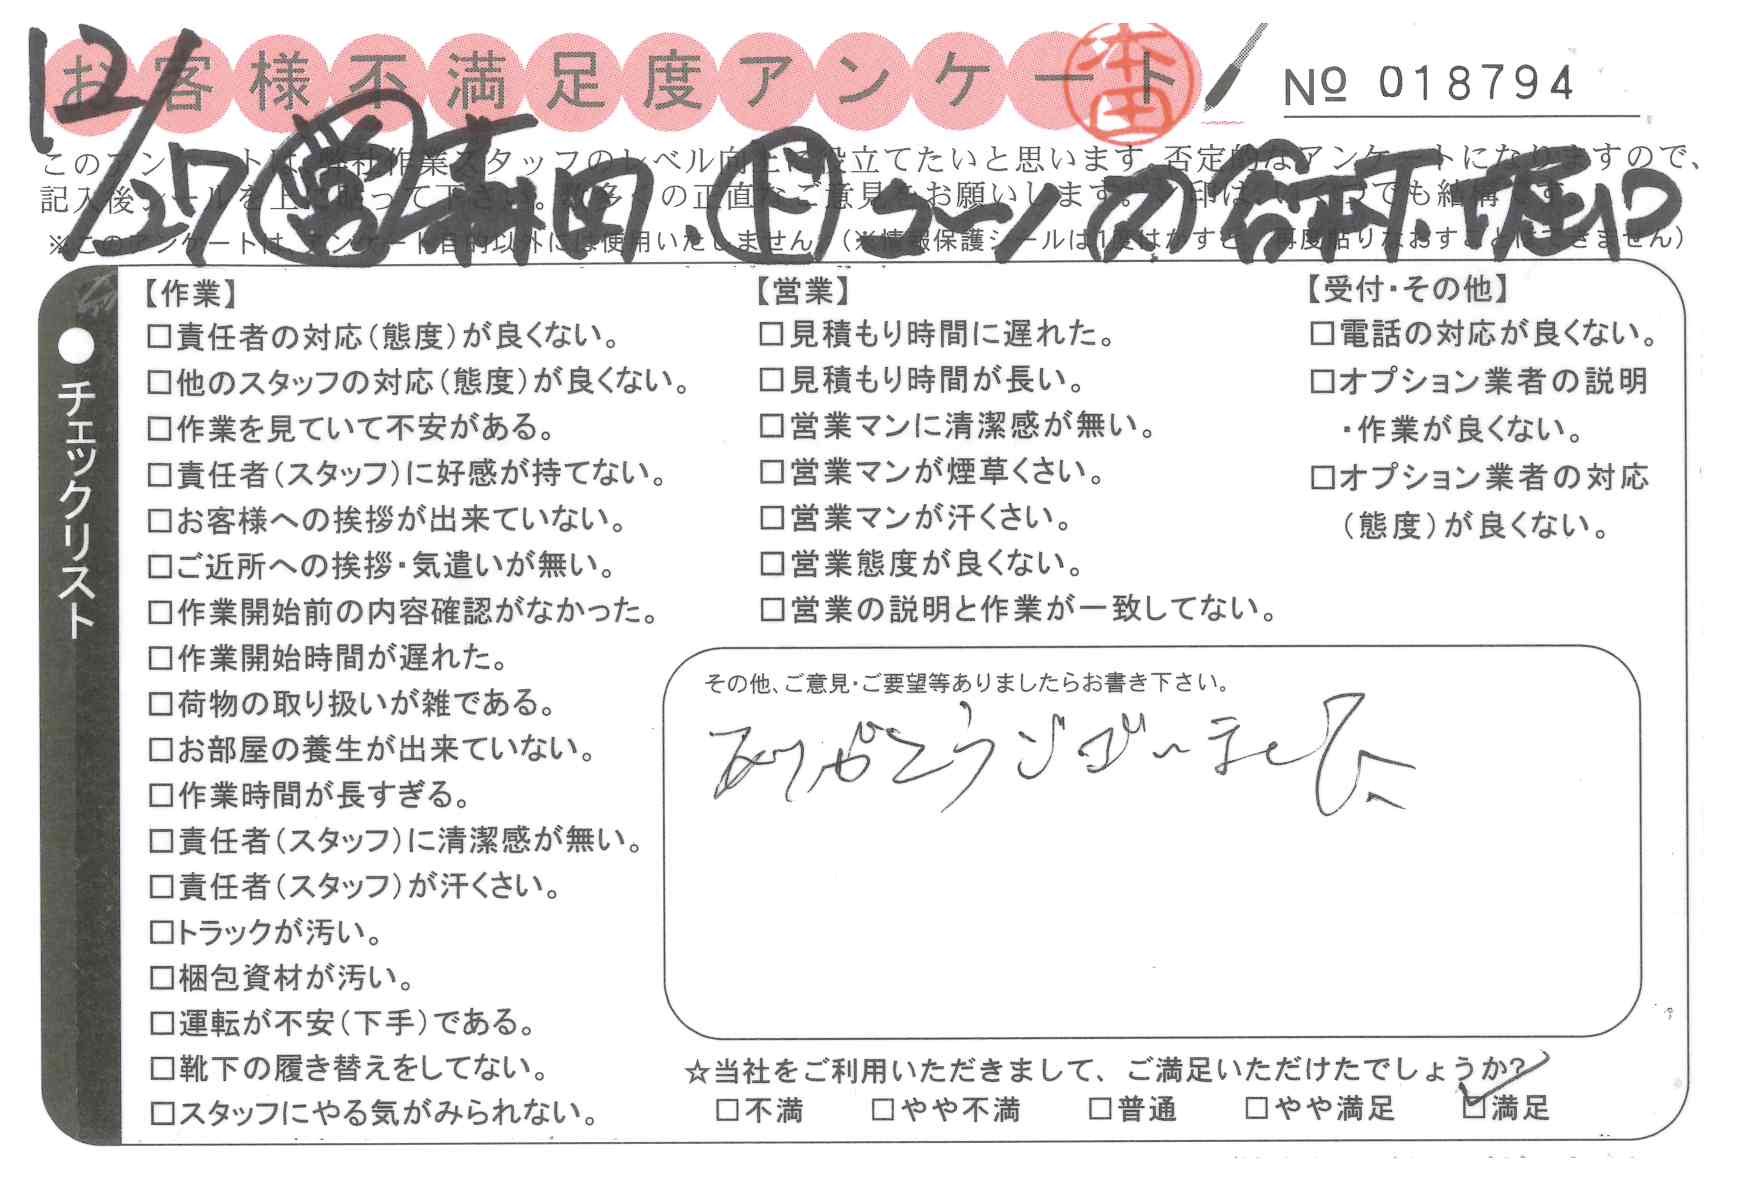 お客様不満足度アンケート
本田
No 018794
12/27 営 森田 . ド コーン(ワ) 谷本下.堀口
このアンケートは、弊社作業スタッフのレベル向上に役立てたいと思います。否定的なアンケートになりますので、
記入後シールを上に貼って下さい。数多くの正直なご意見をお願いします。✓印は、いくつでも結構です。
※このアンケートは、アンケート目的以外には使用いたしません。(※情報保護シールは1度はがすと、再度貼りなおすことはできません)
●チェックリスト
【作業】
□責任者の対応(態度)が良くない。
□他のスタッフの対応(態度)が良くない。
□作業を見ていて不安がある。
□責任者(スタッフ)に好感が持てない。
□お客様への挨拶が出来ていない。
□ご近所への挨拶・気遣いが無い。
□作業開始前の内容確認がなかった。
□作業開始時間が遅れた。
□荷物の取り扱いが雑である。
□お部屋の養生が出来ていない。
□作業時間が長すぎる。
□責任者(スタッフ)に清潔感が無い。
□責任者(スタッフ)が汗くさい。
□トラックが汚い。
□梱包資材が汚い。
□運転が不安(下手)である。
□靴下の履き替えをしてない。
□スタッフにやる気がみられない。
【営業】
□見積もり時間に遅れた。
□見積もり時間が長い。
□営業マンに清潔感が無い。
□営業マンが煙草くさい。
□営業マンが汗くさい。
□営業態度が良くない。
□営業の説明と作業が一致してない。
【受付・その他】
□電話の対応が良くない。
□オプション業者の説明
・作業が良くない。
□オプション業者の対応
(態度)が良くない。
その他、ご意見・ご要望等ありましたらお書き下さい。
ありがとうございました
☆当社をご利用いただきまして、ご満足いただけたでしょうか?
□不満 □やや不満 □普通 □やや満足 ☑満足